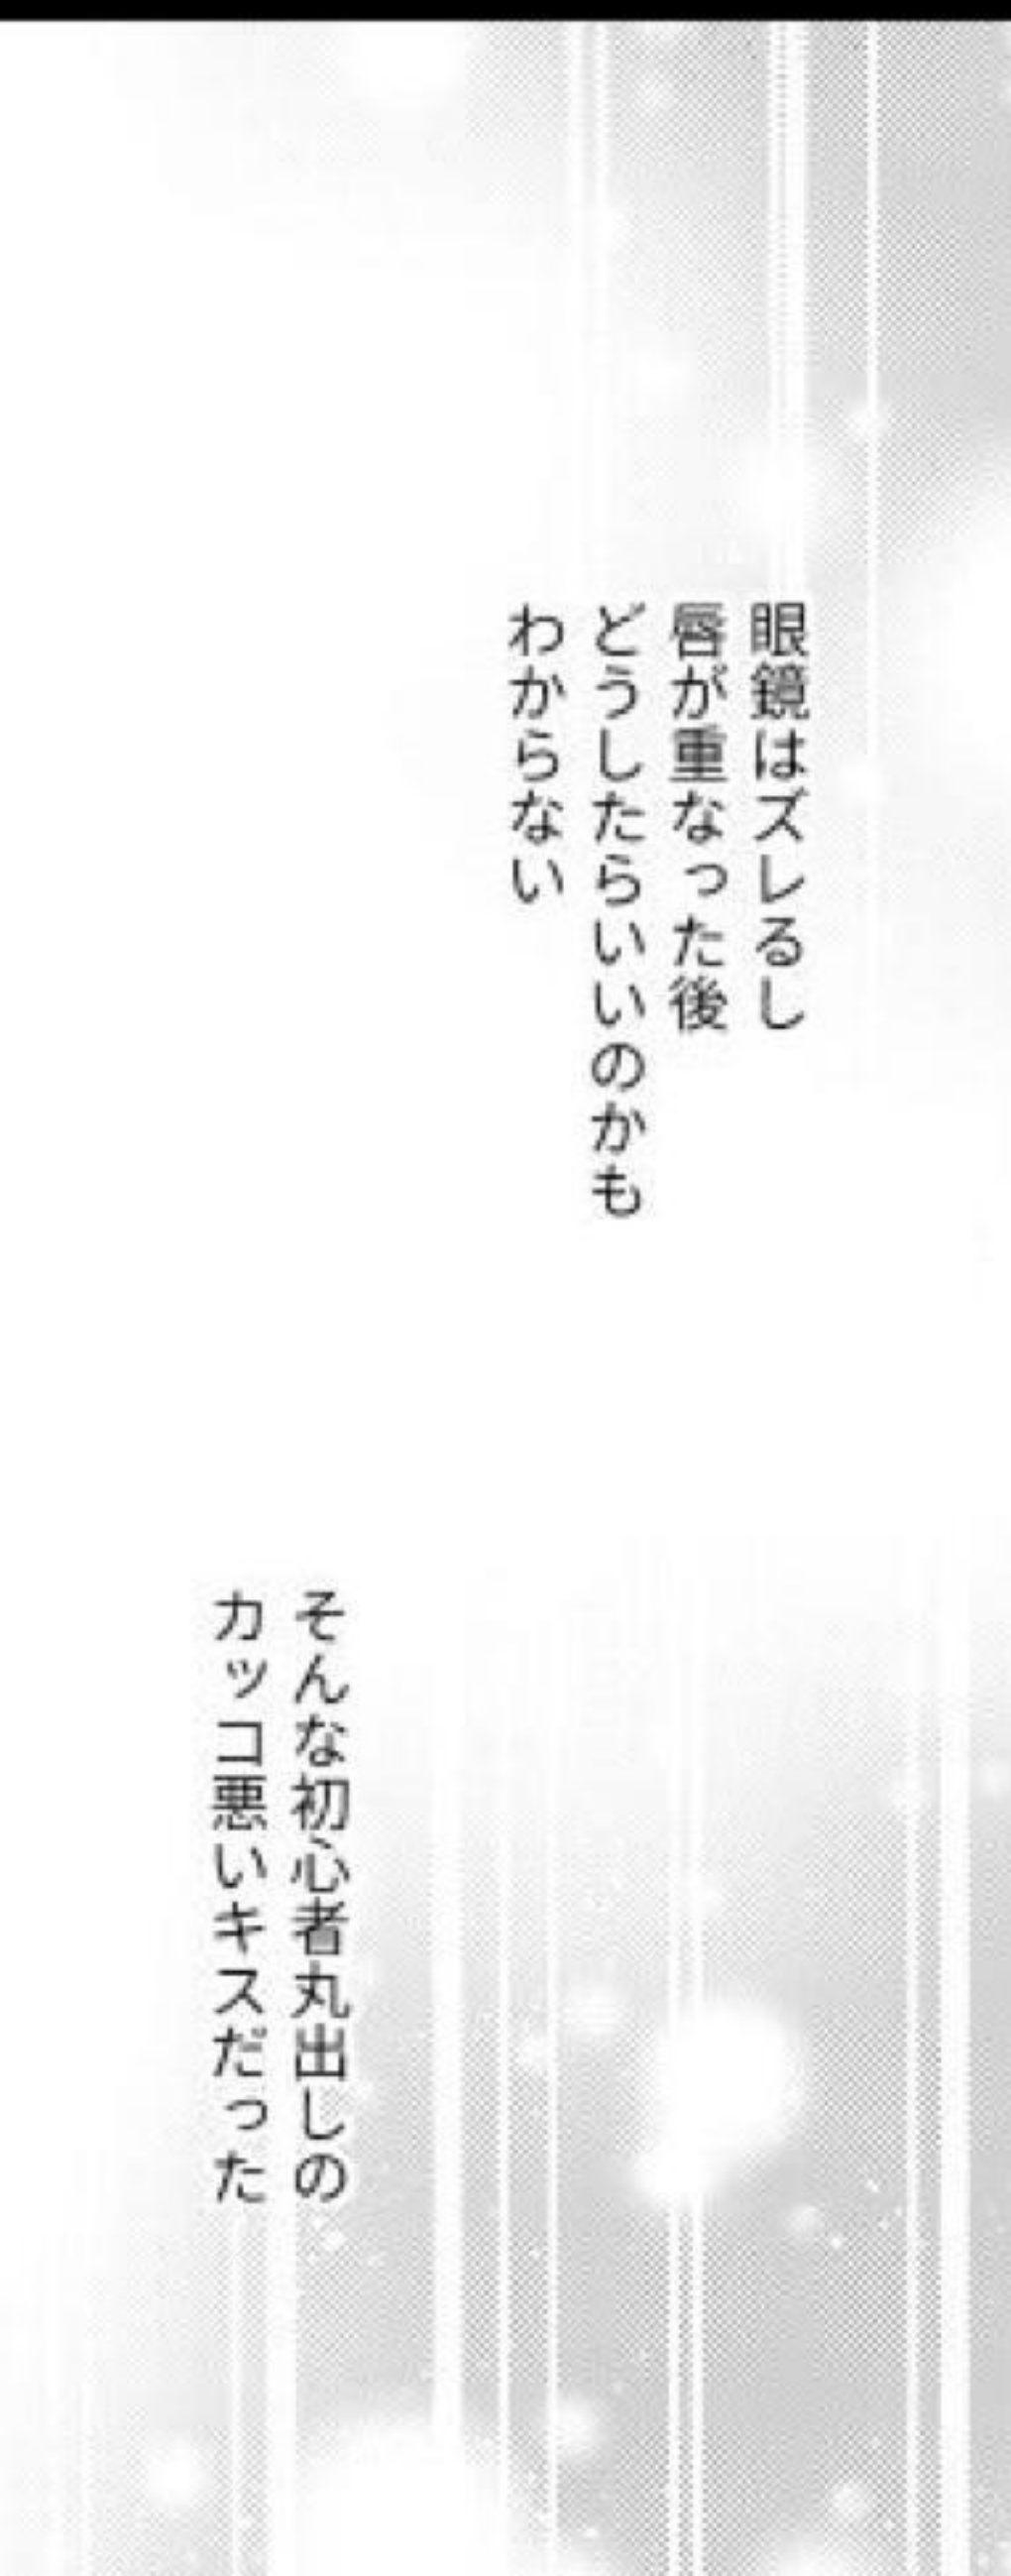 眼鏡はズレるし
唇が重なった後
どうしたらいいのかも
わからない
そんな初心者丸出しの
カッコ悪いキスだった